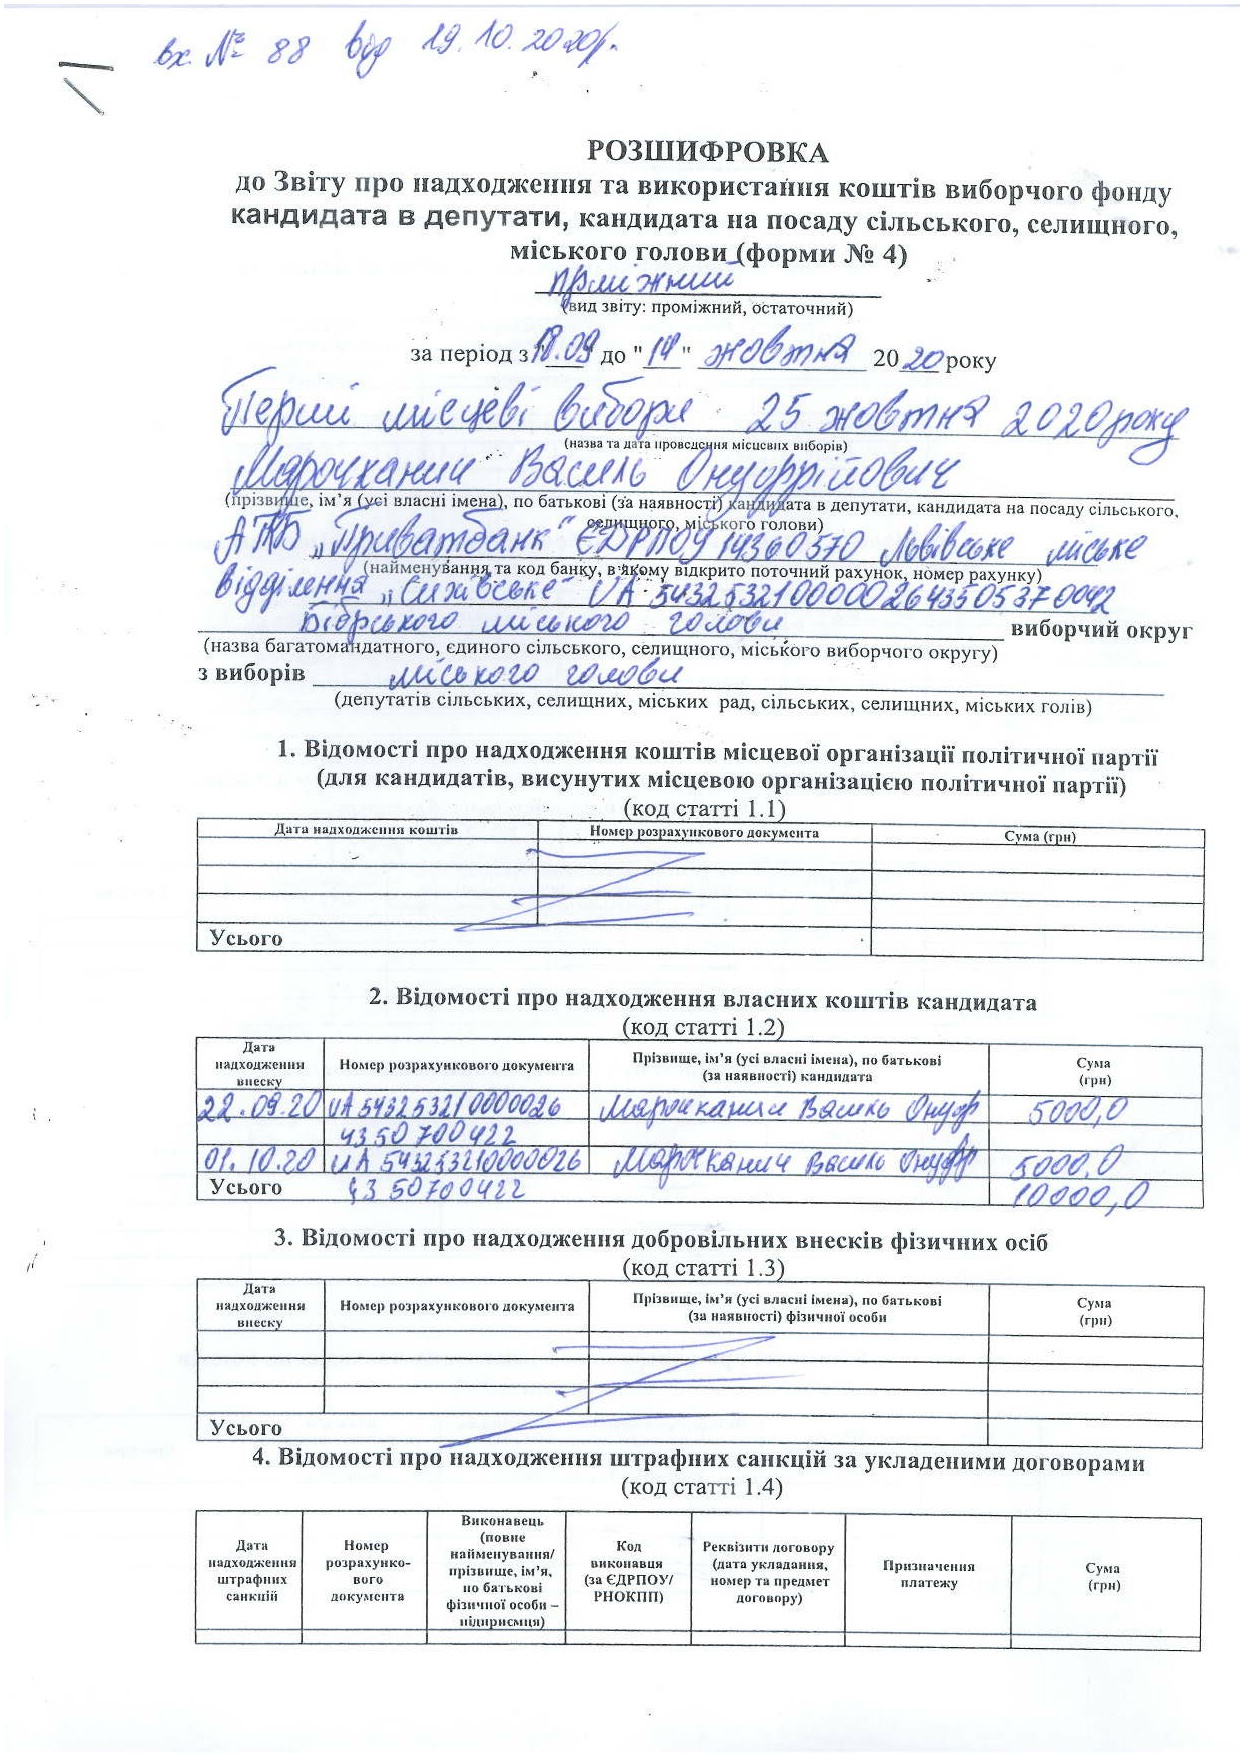 вх. № 88 від 19.10.2020р.
РОЗШИФРОВКА
до Звіту про надходження та використання коштів виборчого фонду
кандидата в депутати, кандидата на посаду сільського, селищного,
міського голови (форми № 4)
проміжний
(вид звіту: проміжний, остаточний)
за період з "18.09" до "14" жовтня 2020 року
Перші місцеві вибори 25 жовтня 2020 року
(назва та дата проведення місцевих виборів)
Марочканич Василь Онуфрійович
(прізвище, ім’я (усі власні імена), по батькові (за наявності) кандидата в депутати, кандидата на посаду сільського,
селищного, міського голови)
АТБ „Приватбанк“ ЄДРПОУ 14360570 Львівське міське
(найменування та код банку, в якому відкрито поточний рахунок, номер рахунку)
відділення „Сихівське“ UA 54325321000002643505370042
Бібрського міського голови виборчий округ
(назва багатомандатного, єдиного сільського, селищного, міського виборчого округу)
з виборів міського голови
(депутатів сільських, селищних, міських рад, сільських, селищних, міських голів)
1. Відомості про надходження коштів місцевої організації політичної партії
(для кандидатів, висунутих місцевою організацією політичної партії)
(код статті 1.1)
Дата надходження коштів Номер розрахункового документа Сума (грн)
Усього
2. Відомості про надходження власних коштів кандидата
(код статті 1.2)
Дата надходження внеску Номер розрахункового документа Прізвище, ім’я (усі власні імена), по батькові (за наявності) кандидата Сума (грн)
22.09.20 UA 543253210000026 Марочканич Василь Онуфр 5000,0
4350700422
01.10.20 UA 543253210000026 Марочканич Василь Онуфр 5000,0
Усього 4350700422 10000,0
3. Відомості про надходження добровільних внесків фізичних осіб
(код статті 1.3)
Дата надходження внеску Номер розрахункового документа Прізвище, ім’я (усі власні імена), по батькові (за наявності) фізичної особи Сума (грн)
Усього
4. Відомості про надходження штрафних санкцій за укладеними договорами
(код статті 1.4)
Дата надходження штрафних санкцій Номер розрахунко-вого документа Виконавець (повне найменування/ прізвище, ім’я, по батькові фізичної особи – підприємця) Код виконавця (за ЄДРПОУ/ РНОКПП) Реквізити договору (дата укладання, номер та предмет договору) Призначення платежу Сума (грн)